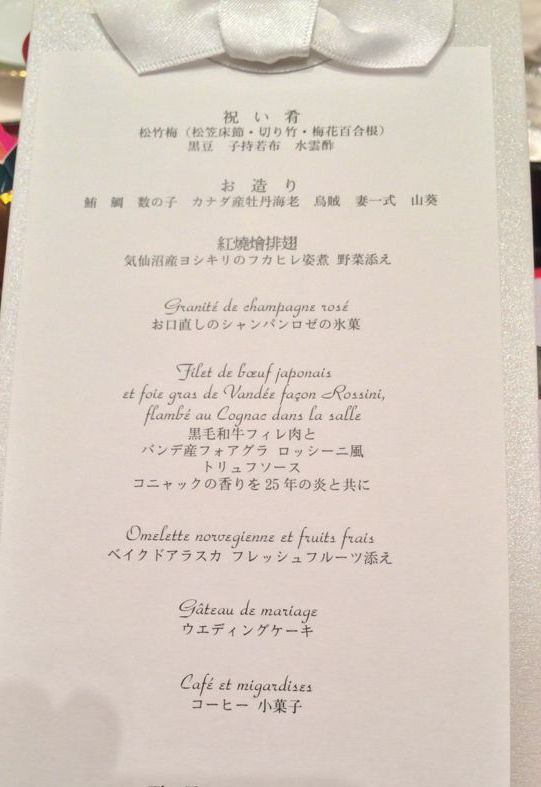 祝い肴
松竹梅（松笠床節・切り竹・梅花百合根）
黒豆　子持若布　水雲酢
お造り
鮪　鯛　数の子　カナダ産牡丹海老　烏賊　妻一式　山葵
紅燒燴排翅
気仙沼産ヨシキリのフカヒレ姿煮 野菜添え
Granité de champagne rosé
お口直しのシャンパンロゼの氷菓
Filet de bœuf japonais
et foie gras de Vandée façon Rossini,
flambé au Cognac dans la salle
黒毛和牛フィレ肉と
バンデ産フォアグラ ロッシーニ風
トリュフソース
コニャックの香りを25年の炎と共に
Omelette norvegienne et fruits frais
ベイクドアラスカ フレッシュフルーツ添え
Gâteau de mariage
ウエディングケーキ
Café et migardises
コーヒー 小菓子